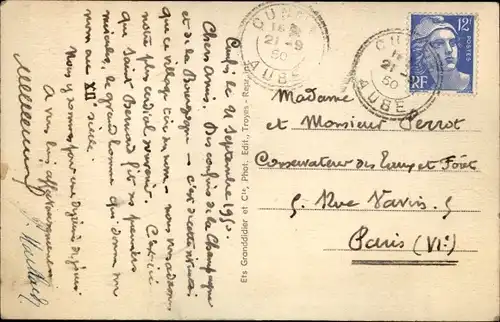 Cunfin le 21 Septembre 1950.
Chers Amis. Des confins de la Champagne
et de la Bourgogne – c'est de cette
que ce village tire son nom – nous vous adressons
notre plus cordial souvenir. C'est ici
que Saint Bernard fit ses premiers
miracles, le grand homme qui donna son
nom au XIIe siècle.
Nous y sommes pour une dizaine de jours
A vous bien affectueusement
Ets Granddidier et Cie, Phot. Edit., Troyes
CUNFIN
16
21-9
50
AUBE
CUNFIN
21-9
50
AUBE
12F
POSTES
RF
Madame
et Monsieur Perrot
Conservateur des Eaux et Forêt
5. Rue Vavin. 5
Paris (VIe)